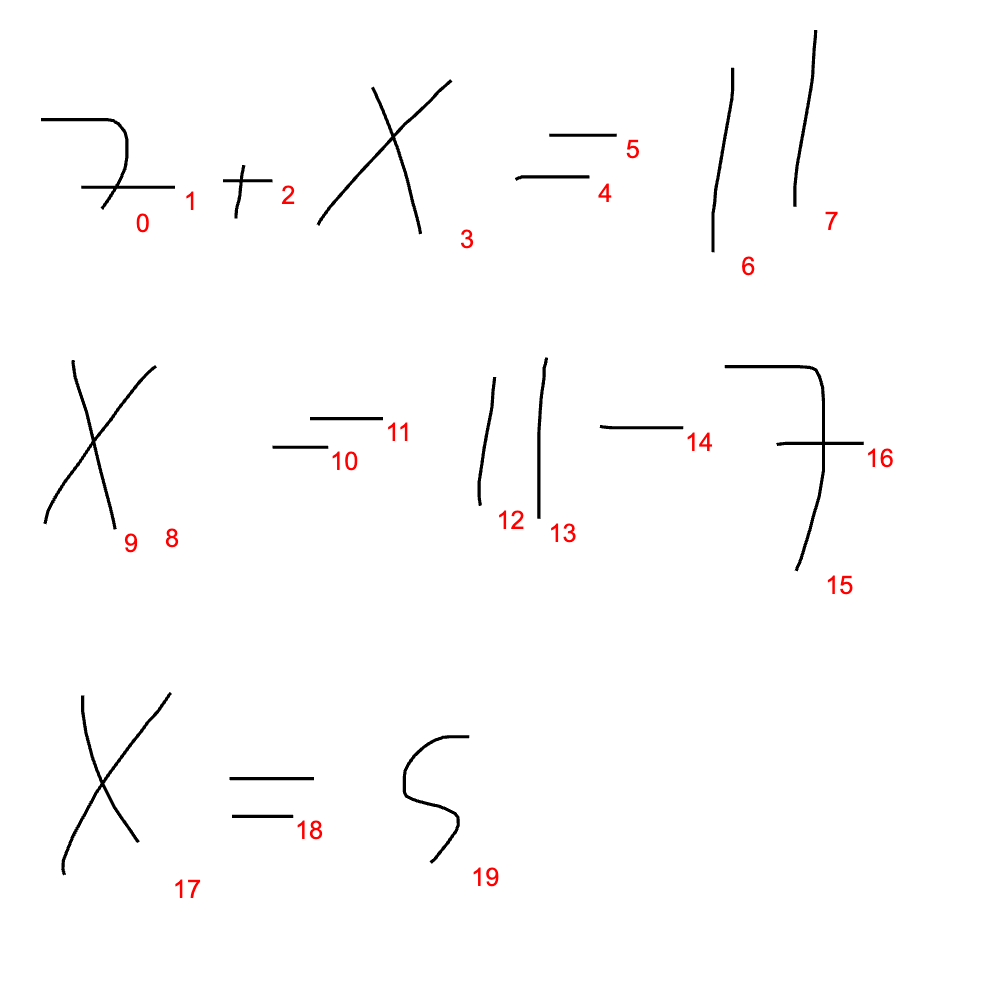 7 + x = 11
0 1 2 3 4 5 6 7
x = 11 - 7
9 8 10 11 12 13 14 15 16
x = 5
17 18 19